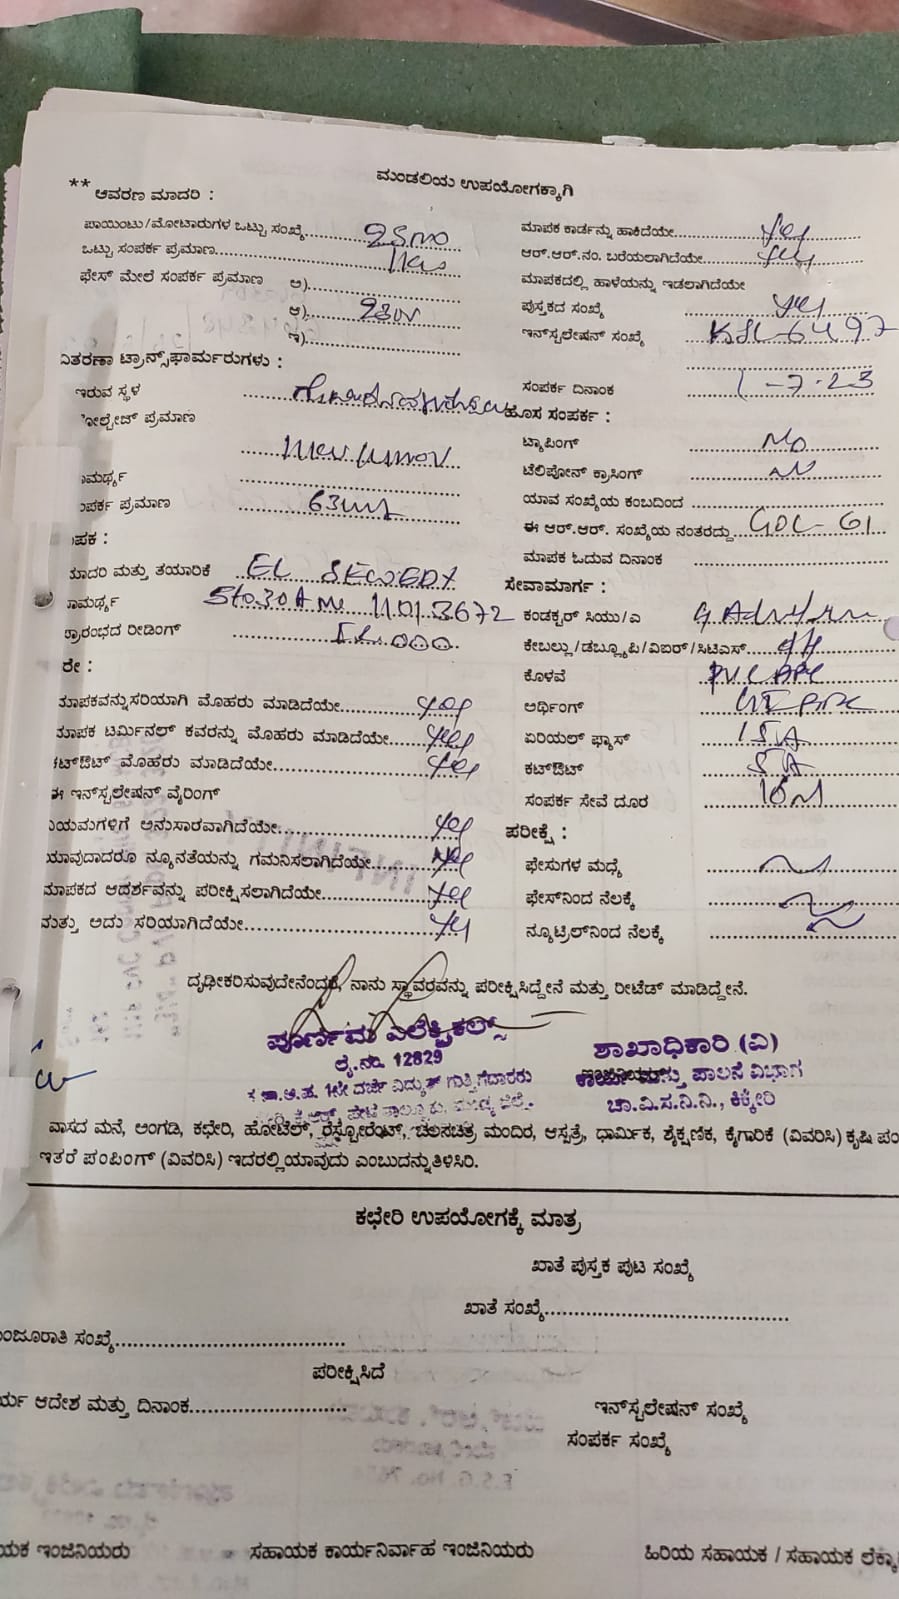 ಮಂಡಲಿಯ ಉಪಯೋಗಕ್ಕಾಗಿ
** ಆವರಣ ಮಾದರಿ :
ಪಾಯಿಂಟು/ಮೋಟಾರುಗಳ ಒಟ್ಟು ಸಂಖ್ಯೆ
ಒಟ್ಟು ಸಂಪರ್ಕ ಪ್ರಮಾಣ
ಫೇಸ್ ಮೇಲೆ ಸಂಪರ್ಕ ಪ್ರಮಾಣ ಅ)
ಆ) 230V
ಇ)
ವಿತರಣಾ ಟ್ರಾನ್ಸ್‌ಫಾರ್ಮರುಗಳು :
ಇರುವ ಸ್ಥಳ
ೋಲ್ಟೇಜ್ ಪ್ರಮಾಣ
ಾಮರ್ಥ್ಯ
ಂಪರ್ಕ ಪ್ರಮಾಣ 63
ಾಪಕ :
ಮಾದರಿ ಮತ್ತು ತಯಾರಿಕೆ EL
ಾಮರ್ಥ್ಯ 11013672
ಪ್ರಾರಂಭದ ರೀಡಿಂಗ್
ರೇ :
ಮಾಪಕವನ್ನು ಸರಿಯಾಗಿ ಮೊಹರು ಮಾಡಿದೆಯೇ yes
ಮಾಪಕ ಟರ್ಮಿನಲ್ ಕವರನ್ನು ಮೊಹರು ಮಾಡಿದೆಯೇ yes
ಕಟ್‌ಔಟ್ ಮೊಹರು ಮಾಡಿದೆಯೇ yes
ಈ ಇನ್‌ಸ್ಟಲೇಷನ್ ವೈರಿಂಗ್
ನಿಯಮಗಳಿಗೆ ಅನುಸಾರವಾಗಿದೆಯೇ yes
ಯಾವುದಾದರೂ ನ್ಯೂನತೆಯನ್ನು ಗಮನಿಸಲಾಗಿದೆಯೇ
ಮಾಪಕದ ಆದರ್ಶವನ್ನು ಪರೀಕ್ಷಿಸಲಾಗಿದೆಯೇ yes
ಮತ್ತು ಅದು ಸರಿಯಾಗಿದೆಯೇ yes
ಮಾಪಕ ಕಾರ್ಡನ್ನು ಹಾಕಿದೆಯೇ yes
ಆರ್.ಆರ್.ನಂ. ಬರೆಯಲಾಗಿದೆಯೇ yes
ಮಾಪಕದಲ್ಲಿ ಹಾಳೆಯನ್ನು ಇಡಲಾಗಿದೆಯೇ
ಪುಸ್ತಕದ ಸಂಖ್ಯೆ yes
ಇನ್‌ಸ್ಟಲೇಷನ್ ಸಂಖ್ಯೆ KSL-6497
ಸಂಪರ್ಕ ದಿನಾಂಕ 1-7-23
ಹೊಸ ಸಂಪರ್ಕ :
ಟ್ಯಾಪಿಂಗ್ No
ಟೆಲಿಫೋನ್ ಕ್ರಾಸಿಂಗ್ No
ಯಾವ ಸಂಖ್ಯೆಯ ಕಂಬದಿಂದ
ಈ ಆರ್.ಆರ್. ಸಂಖ್ಯೆಯ ನಂತರದ್ದು GOL-61
ಮಾಪಕ ಓದುವ ದಿನಾಂಕ
ಸೇವಾಮಾರ್ಗ :
ಕಂಡಕ್ಟರ್ ಸಿಯು/ಎ
ಕೇಬಲ್ಲು/ಡಬ್ಲ್ಯೂಪಿ/ವಿಐರ್/ಸಿಟಿಎಸ್
ಕೊಳವೆ PVC PPE
ಅರ್ಥಿಂಗ್
ಏರಿಯಲ್ ಫ್ಯಾಸ್ 15A
ಕಟ್‌ಔಟ್ 5A
ಸಂಪರ್ಕ ಸೇವೆ ದೂರ 10M
ಪರೀಕ್ಷೆ :
ಫೇಸುಗಳ ಮಧ್ಯೆ
ಫೇಸ್‌ನಿಂದ ನೆಲಕ್ಕೆ
ನ್ಯೂಟ್ರಲ್‌ನಿಂದ ನೆಲಕ್ಕೆ
ದೃಢೀಕರಿಸುವುದೇನೆಂದರೆ, ನಾನು ಸ್ಥಾವರವನ್ನು ಪರೀಕ್ಷಿಸಿದ್ದೇನೆ ಮತ್ತು ರೀಟೆಡ್ ಮಾಡಿದ್ದೇನೆ.
ಪೂರ್ಣಿಮ ಎಲೆಕ್ಟ್ರಿಕಲ್ಸ್
ಲೈ.ನಂ. 12829
ದರ್ಜೆ ವಿದ್ಯುತ್ ಗುತ್ತಿಗೆದಾರರು
ಶಾಖಾಧಿಕಾರಿ (ವಿ)
ಕಾರ್ಯ ಮತ್ತು ಪಾಲನೆ ವಿಭಾಗ
ಚಾ.ವಿ.ಸ.ನಿ.ನಿ., ಕಿಕ್ಕೇರಿ
ವಾಸದ ಮನೆ, ಅಂಗಡಿ, ಕಛೇರಿ, ಹೋಟೆಲ್, ರೆಸ್ಟೋರೆಂಟ್, ಚಲನಚಿತ್ರ ಮಂದಿರ, ಆಸ್ಪತ್ರೆ, ಧಾರ್ಮಿಕ, ಶೈಕ್ಷಣಿಕ, ಕೈಗಾರಿಕೆ (ವಿವರಿಸಿ) ಕೃಷಿ ಪಂ
ಇತರೆ ಪಂಪಿಂಗ್ (ವಿವರಿಸಿ) ಇದರಲ್ಲಿ ಯಾವುದು ಎಂಬುದನ್ನು ತಿಳಿಸಿರಿ.
ಕಛೇರಿ ಉಪಯೋಗಕ್ಕೆ ಮಾತ್ರ
ಖಾತೆ ಪುಸ್ತಕ ಪುಟ ಸಂಖ್ಯೆ
ಖಾತೆ ಸಂಖ್ಯೆ
ಂಜೂರಾತಿ ಸಂಖ್ಯೆ
ಪರೀಕ್ಷಿಸಿದೆ
ರ್ಯ ಆದೇಶ ಮತ್ತು ದಿನಾಂಕ
ಇನ್‌ಸ್ಟಲೇಷನ್ ಸಂಖ್ಯೆ
ಸಂಪರ್ಕ ಸಂಖ್ಯೆ
ಯಕ ಇಂಜಿನಿಯರು ಸಹಾಯಕ ಕಾರ್ಯನಿರ್ವಾಹ ಇಂಜಿನಿಯರು ಹಿರಿಯ ಸಹಾಯಕ / ಸಹಾಯಕ ಲೆಕ್ಕಾ